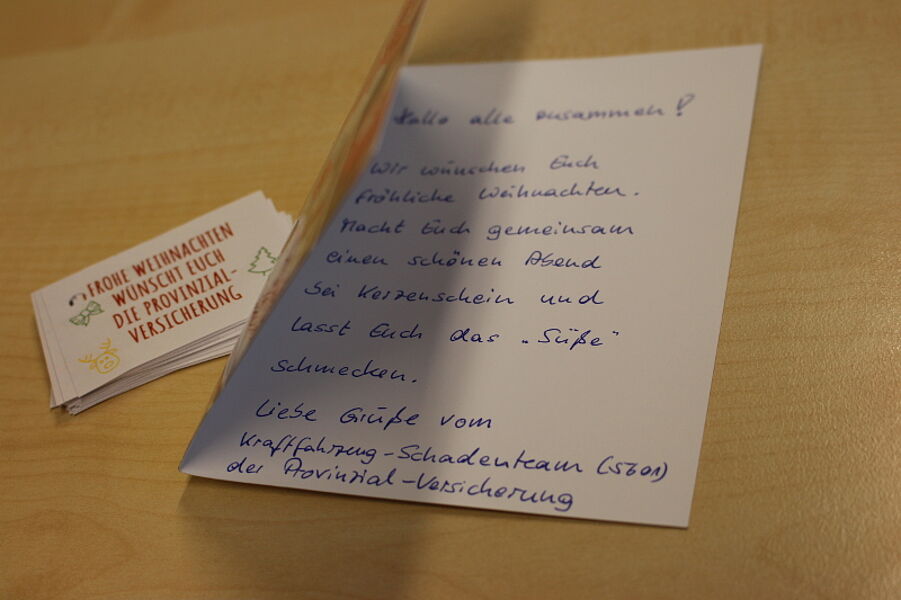 FROHE WEIHNACHTEN
WÜNSCHT EUCH
DIE PROVINZIAL-
VERSICHERUNG
Hallo alle zusammen!
Wir wünschen Euch
fröhliche Weihnachten.
Macht Euch gemeinsam
einen schönen Abend
bei Kerzenschein und
lasst Euch das „Süße"
schmecken.
Liebe Grüße vom
Kraftfahrzeug-Schadenteam (5601)
der Provinzial-Versicherung